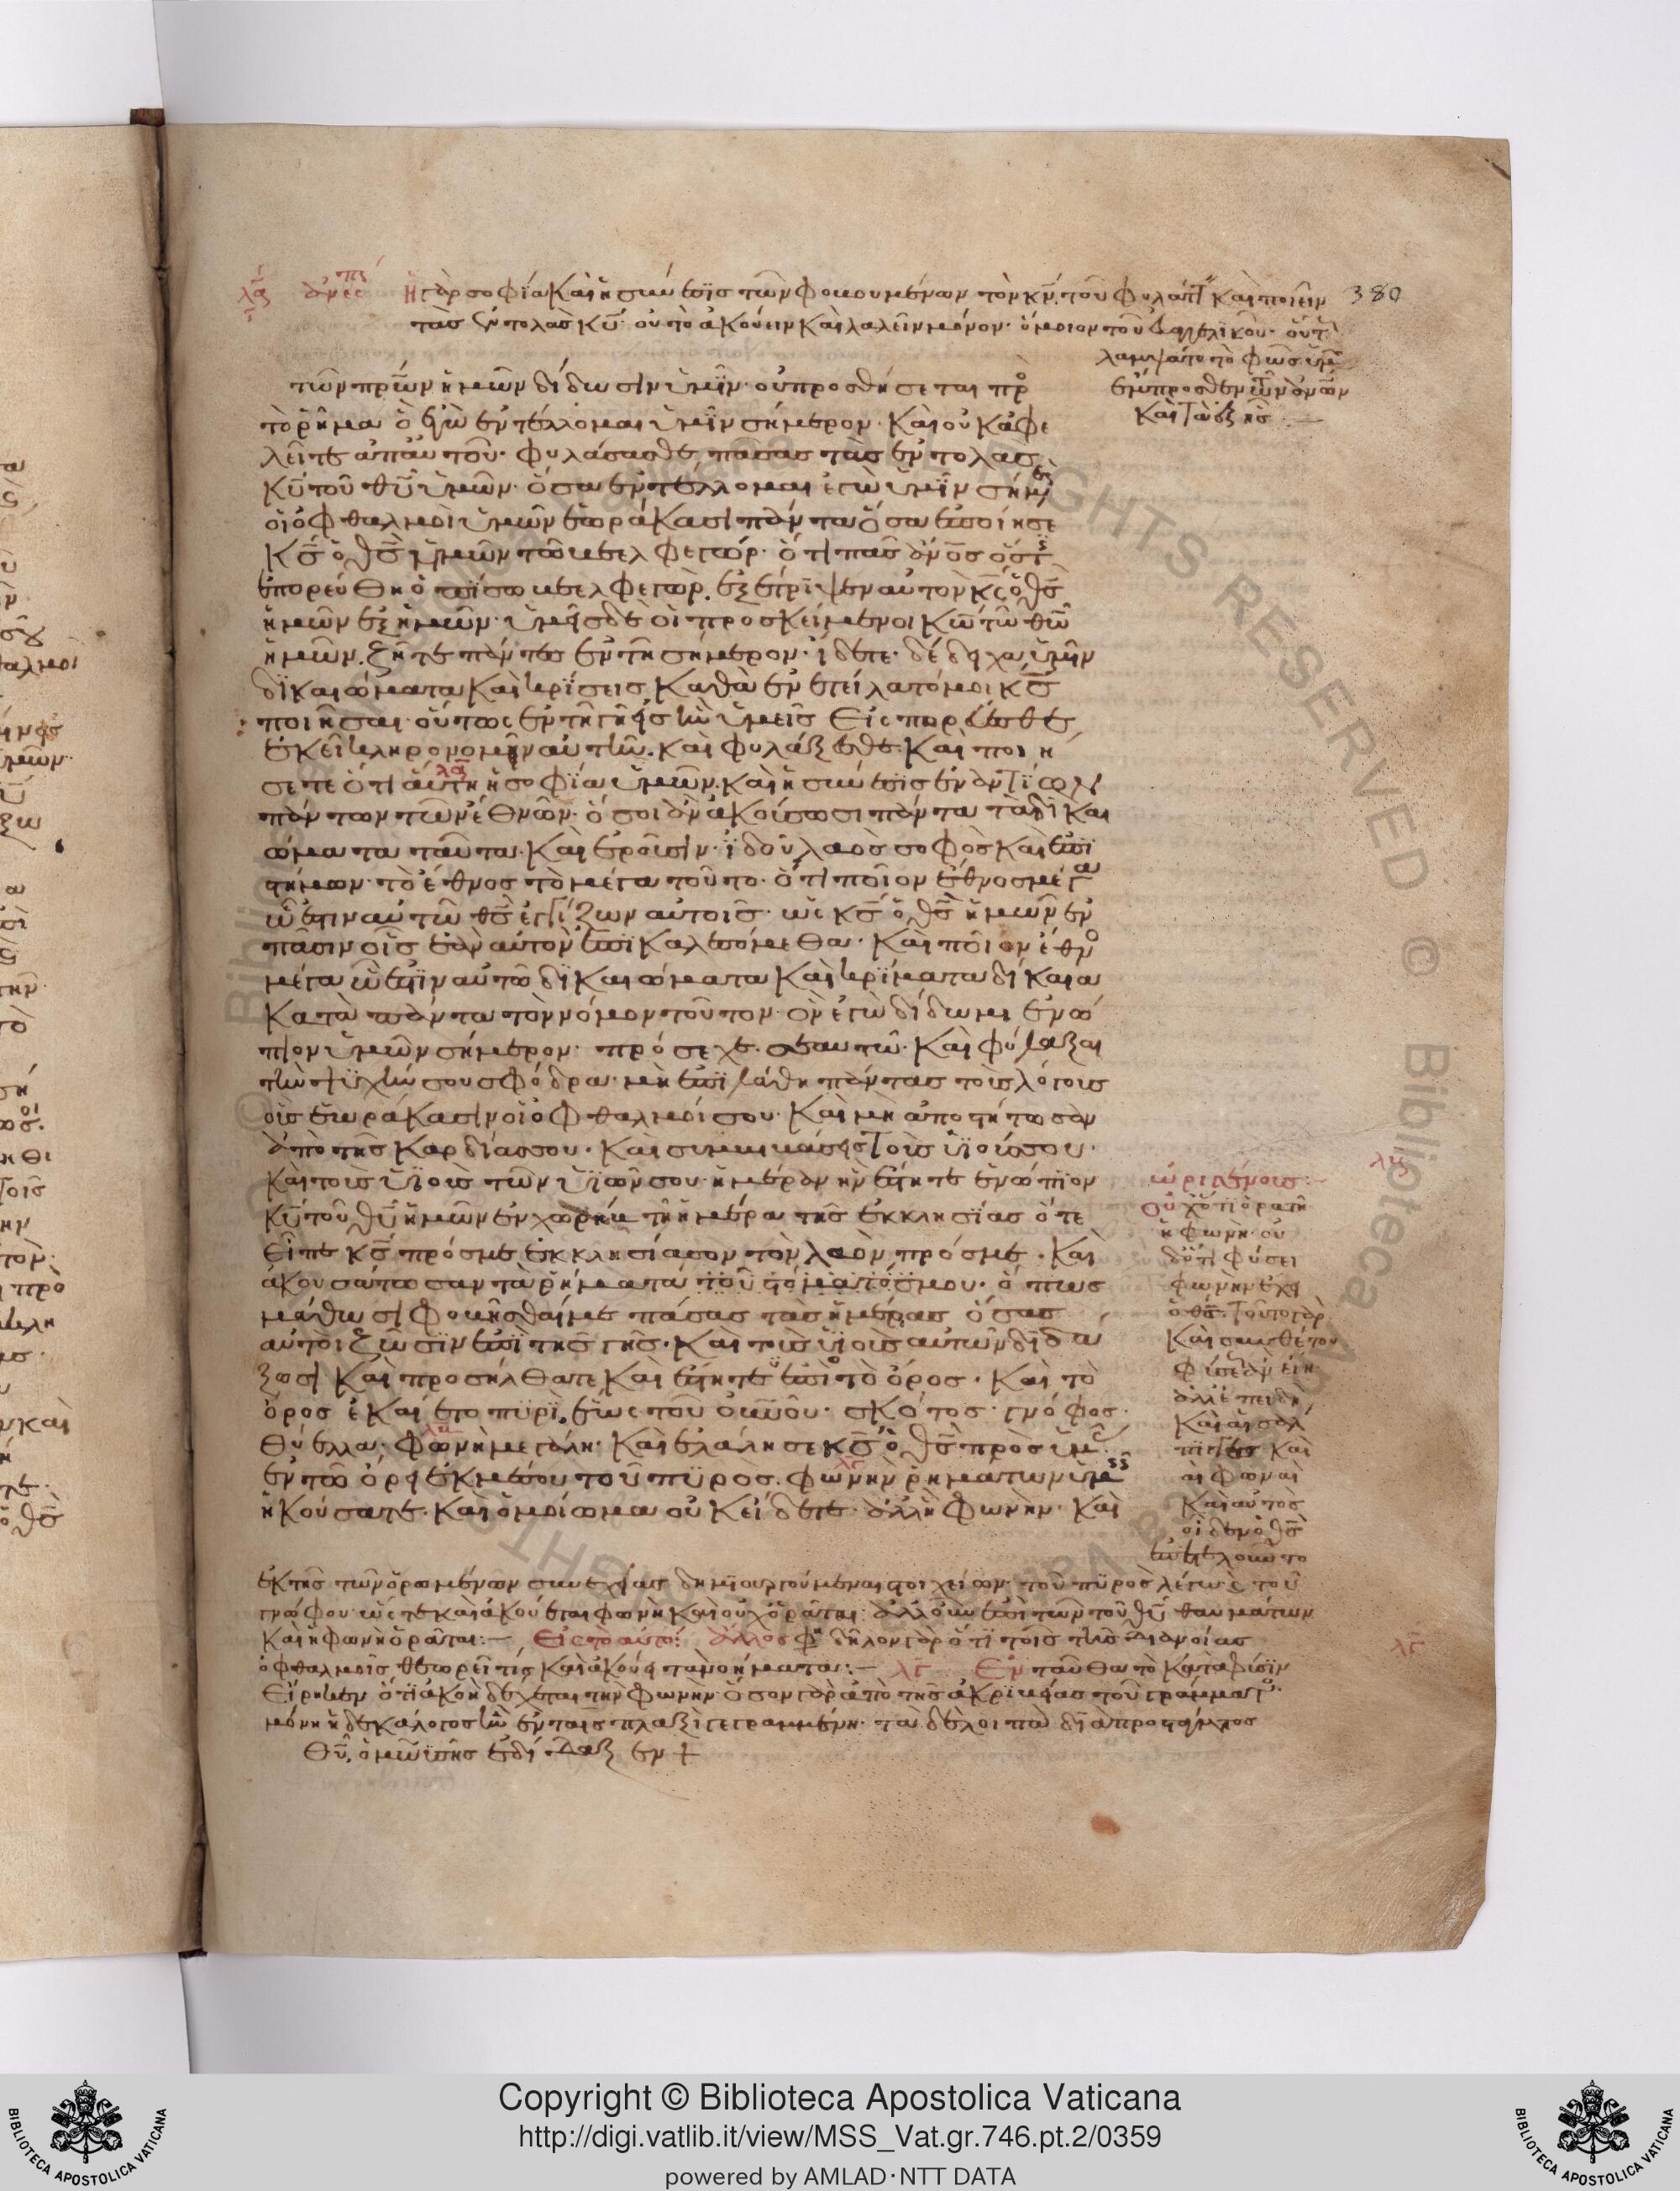 Ἡ γὰρ σοφία καὶ ἡ σύνεσις τῶν φοβουμένων τὸν κν̄ τοῦ φυλάττ καὶ ποιεῖν 380
τὰς ἐντολὰς κῡ· οὐ τὸ ἀκούειν καὶ λαλεῖν μόνον·
λαμψάτω τὸ φῶς ὑμ
ἔμπροσθεν τῶν ἀνων
καὶ τὰ ἑξῆς
τῶν πρων ἡμῶν δίδωσιν ὑμῖν· οὐ προσθήσεται πρ
τὸ ῥῆμα ὃ ἐγὼ ἐντέλλομαι ὑμῖν σήμερον· καὶ οὐκ ἀφε
λεῖτε ἀπ αὐτοῦ· φυλάσασθε πάσας τὰς ἐντολὰς
κῡ τοῦ θῡ ὑμῶν· ὅσα ἐντέλλομαι ἐγὼ ὑμῖν σήμ
οἱ ὀφθαλμοὶ ὑμῶν ἑωράκασι πάντα ὅσα ἐποίησε
κς̄ ὁ θς̄ ἡμῶν τῶ βεελφεγώρ· ὅτι πᾶς ἀνος ὅστ
ἐπορεύθη ὀπίσω βεελφεγώρ, ἐξέτριψεν αὐτὸν κς̄ ὁ θς̄
ἡμῶν ἐξ ἡμῶν· ὑμεῖς δὲ οἱ προσκείμενοι κω̄ τῶ θω̄
ἡμῶν, ζῆτε πάντες ἐν τῆ σήμερον· ἴδετε· δέδειχα ὑμῖν
δικαιώματα καὶ κρίσεις καθὰ ἐνετείλατό μοι κς̄
ποιῆσαι· οὕτως ἐν τῆ γῆ εἰς ἣν ὑμεῖς εἰσπορεύεσθε
ἐκεῖ κληρονομεῖν αὐτήν· καὶ φυλάξεσθε καὶ ποιή
σετε ὅτι αὕτη ἡ σοφία ὑμῶν, καὶ ἡ σύνεσις ἐναντίον
πάντων τῶν ἐθνῶν· ὅσοι ἂν ἀκούσωσι πάντα τὰ δικαι
ώματα ταῦτα· καὶ ἐροῦσιν· ἰδοὺ λαὸς σοφὸς καὶ ἐπι
στήμων· τὸ ἔθνος τὸ μέγα τοῦτο· ὅτι ποῖον ἔθνος μέγα
ὧ ἐστιν αὐτῶ θς̄ ἐγγίζων αὐτοῖς· ὡς κς̄ ὁ θς̄ ἡμῶν ἐν
πᾶσιν οἷς ἐὰν αὐτὸν ἐπικαλεσόμεθα· καὶ ποῖον ἔθν
μέγα ὧ ἐστιν αὐτῶ δικαιώματα καὶ κρίματα δίκαια
κατὰ πάντα τὸν νόμον τοῦτον· ὃν ἐγὼ δίδωμι ἐνώ
πιον ὑμῶν σήμερον· πρόσεχε σεαυτῶ· καὶ φύλαξαι
τὴν ψυχήν σου σφόδρα· μὴ ἐπιλάθη πάντας τοὺς λόγους
οὓς ἑωράκασιν οἱ ὀφθαλμοί σου· καὶ μὴ ἀποστήτωσαν
ἀπὸ τῆς καρδίας σου· καὶ συμβιβάσεις τοὺς υἱούς σου·
καὶ τοὺς υἱοὺς τῶν υἱῶν σου· ἡμέραν ἣν ἔστητε ἐνώπιον
κῡ τοῦ θῡ ἡμῶν ἐν χωρὴβ τῆ ἡμέρα τῆς ἐκκλησίας ὅτε
εἶπε κς̄ πρός με ἐκκλησίασον τὸν λαὸν πρός με· καὶ
ἀκουσάτωσαν τὰ ῥήματα τοῦ στόματός μου· ὅπως
μάθωσι φοβεῖσθαί με πάσας τὰς ἡμέρας ὅσας
αὐτοὶ ζῶσιν ἐπὶ τῆς γῆς· καὶ τοὺς υἱοὺς αὐτῶν διδά
ξωσι καὶ προσήλθατε καὶ ἔστητε ὑπὸ τὸ ὄρος· καὶ τὸ
ὄρος ἐκαίετο πυρὶ, ἕως τοῦ οὐνοῦ· σκότος· γνόφος·
θύελλα· φωνὴ μεγάλη· καὶ ἐλάλησε κς̄ ὁ θς̄ πρὸς ὑμ
ἐν τῶ ὄρει ἐκ μέσου τοῦ πυρὸς· φωνὴν ῥημάτων ὑμεῖς
ἠκούσατε· καὶ ὁμοίωμα οὐκ εἴδετε· ἀλλ ἢ φωνήν· καὶ
ὠριγένους:
Οὐχ ὅτι ὁρατὴ
ἡ φωνὴ· οὐ
δ ὅτι φύσει
φωνὴν ἔχει
ὁ θς̄· τοῦτο γὰρ
καὶ συνθέτου
φύσεως ἂν εἴη·
ἀλλ ἐπειδὴ
καὶ αἱ σάλ
πιγγες καὶ
αἱ φωναὶ
καὶ αὐτὸς
οἶδεν ὁ θς̄
ἐπετελοῦντο
ἐκ τῆς τῶν ὁρωμένων συνεχείας δημιουργούμεναι στοιχείων· τοῦ πυρὸς λέγω καὶ τοῦ
γνόφου· ὥστε καὶ ἀκούεται φωνὴ καὶ οὐχ ὁρᾶται· ἀλλ οὖν ἐπὶ τῶν τοῦ θῡ θαυμάτων
καὶ ἡ φωνὴ ὁρᾶται:— Εἰς τὸ αὐτό: ἄλλος φ δῆλον γὰρ ὅτι τοῖς τῆς διανοίας
ὀφθαλμοῖς θεωρεῖ τις καὶ ἀκούει τὰ νοήματα:— λγ Ἐνταῦθα τὸ κατὰ φύσιν
εἴρηκεν ὅτι ἀκοὴ δέχεται τὴν φωνὴν ὅσον γὰρ ἀπὸ τῆς ἀκριβείας τοῦ γράμματ
μόνη ἡ δεκάλογος ἦν ἐν ταῖς πλαξὶ γεγραμμένη· τὰ δὲ λοιπὰ διὰ προστάγματος
θῡ, ὁ μωϋσῆς ἐδίδαξεν +
Copyright © Biblioteca Apostolica Vaticana
http://digi.vatlib.it/view/MSS_Vat.gr.746.pt.2/0359
powered by AMLAD·NTT DATA
BIBLIOTECA APOSTOLICA VATICANA
BIBLIOTECA APOSTOLICA VATICANA